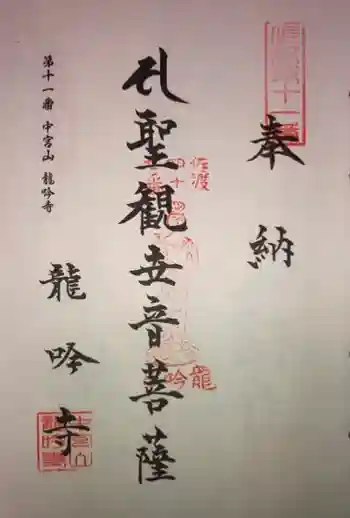 奉納
聖観世音菩薩
龍吟寺
第十一番 中宮山 龍吟寺
佐渡
四十
龍
吟